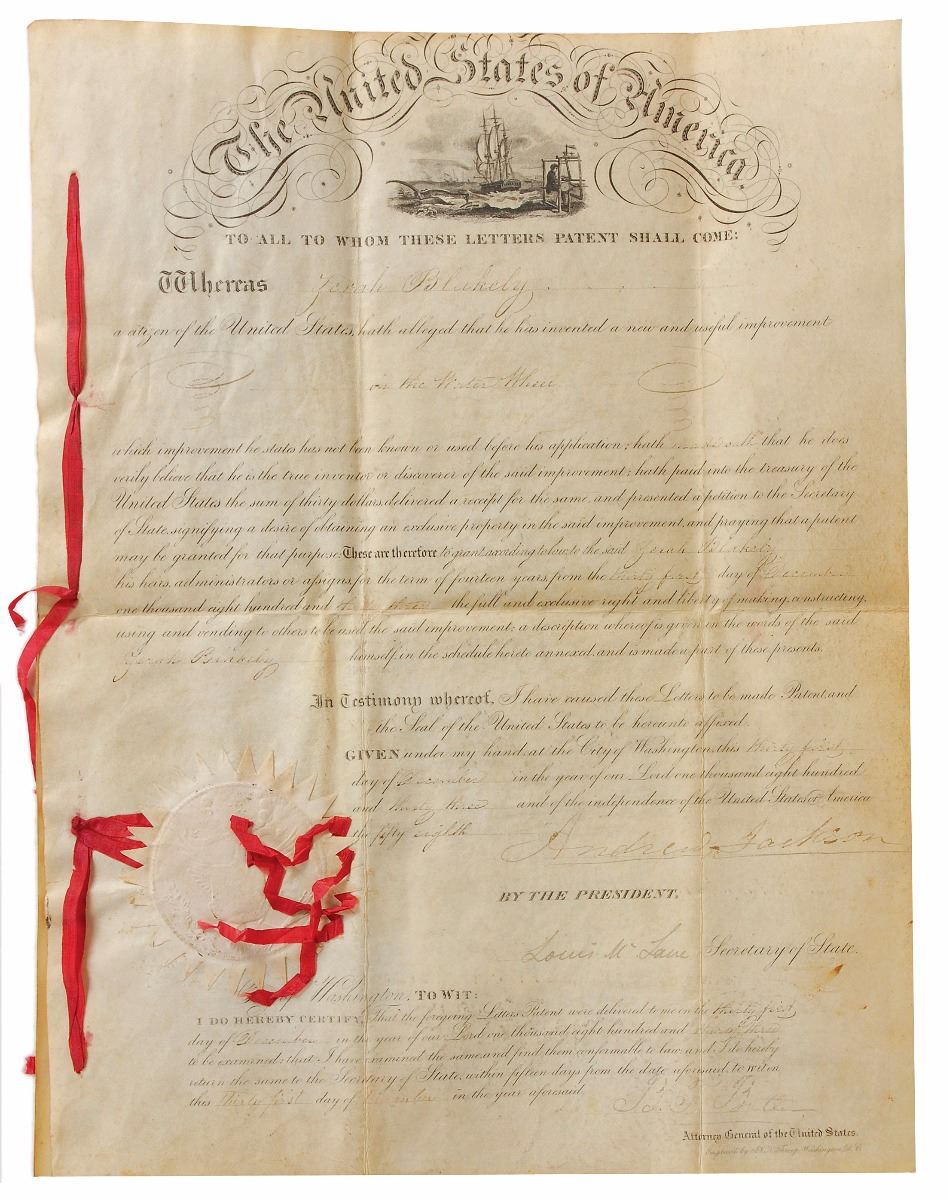 The United States of America
TO ALL TO WHOM THESE LETTERS PATENT SHALL COME:
Whereas Zerah Blakely
a citizen of the United States, hath alleged that he has invented a new and useful improvement
on the Water Wheel
which improvement he states has not been known or used before his application; hath made oath that he does
verily believe that he is the true inventor or discoverer of the said improvement; hath paid into the treasury of the
United States the sum of thirty dollars, delivered a receipt for the same, and presented a petition to the Secretary
of State, signifying a desire of obtaining an exclusive property in the said improvement, and praying that a patent
may be granted for that purpose: These are therefore to grant, according to law, to the said Zerah Blakely
his heirs, administrators or assigns, for the term of fourteen years, from the thirty first day of December
one thousand eight hundred and thirty three the full and exclusive right and liberty of making, constructing,
using and vending to others to be used the said improvement; a discription whereof is given in the words of the said
Zerah Blakely himself, in the schedule hereto annexed, and is made a part of these presents.
In Testimony whereof, I have caused these Letters to be made Patent, and
the Seal of the United States to be hereunto affixed.
GIVEN under my hand, at the City of Washington, this thirty first
day of December in the year of our Lord one thousand eight hundred
and thirty three and of the independence of the United States of America
the fifty eighth
Andrew Jackson
BY THE PRESIDENT,
Louis McLane Secretary of State.
City of Washington, TO WIT:
I DO HEREBY CERTIFY, That the foregoing Letters Patent were delivered to me on the thirty first
day of December in the year of our Lord one thousand eight hundred and thirty three
to be examined; that I have examined the same, and find them conformable to law; and I do hereby
return the same to the Secretary of State, within fifteen days from the date aforesaid, to wit: on
this thirty first day of December in the year aforesaid.
B. F. Butler
Attorney General of the United States.
Engraved by Throop Washington, D. C.